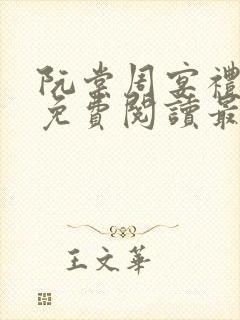 阮棠周宴禮
免費閱讀最
王文華